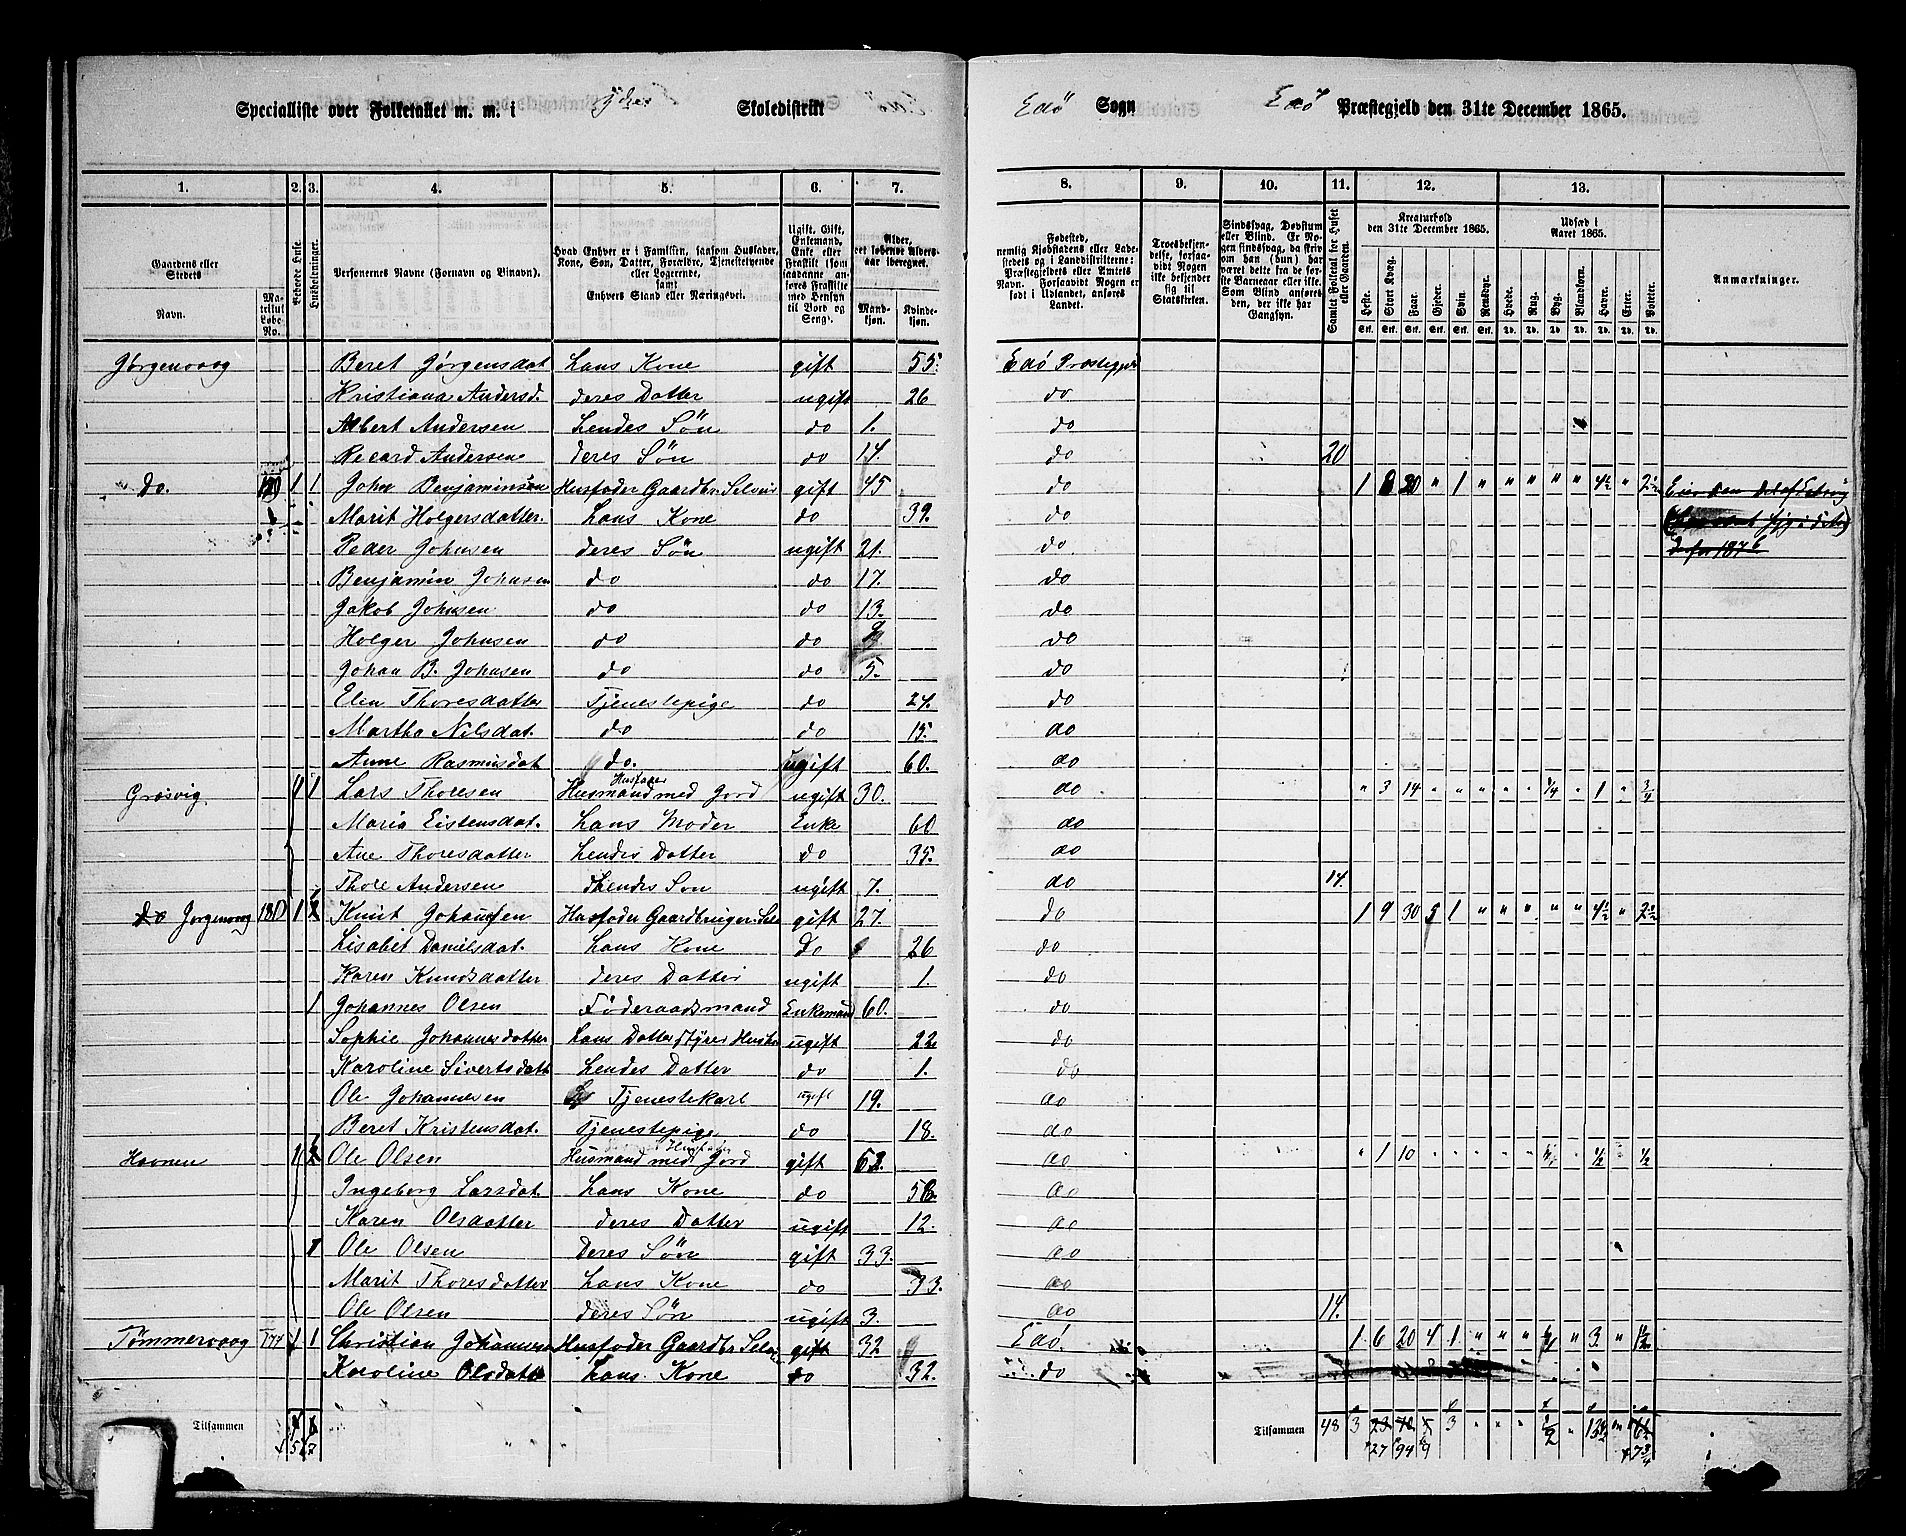 Specialliste over Folketallet m. m. i Ydre Skoledistrikt Edø Sogn Edø Præstegjeld den 31te December 1865.
1. 2. 3. 4. 5. 6. 7. 8. 9. 10. 11. 12. 13.
Gaardens eller Stedets
Navn.
Matrikul Løbe-No.
Beboede Huse.
Husholdninger.
Personernes Navne (Fornavn og Binavn).
Hvad Enhver er i Familien, saasom Husfader, Kone, Søn, Datter, Forældre, Tjenestetyende eller Logerende, samt Enhvers Stand eller Næringsvei.
Ugift, Gift, Enkemand, Enke eller Fraskilt
Alder, det løbende Alders-aar iberegnet.
Mandkjøn. Kvindekjøn.
Fødested, nemlig Kjøbstadens eller Ladestedets og i Landdistrikterne: Præstegjeldets eller Amtets Navn. Forsaavidt Nogen er født i Udlandet, anføres Landet.
Troesbekjendelse, forsaavidt Nogen ikke bekjender sig til Statskirken.
Sindssvag, Døvstum eller Blind.
Samlet Folketal for Huset eller Gaarden.
Kreaturhold den 31te December 1865.
Heste. Stort Kvæg. Faar. Gjeder. Svin. Rensdyr.
Udsæd i Aaret 1865.
Hvede. Rug. Byg. Blandkorn. Havre. Erter. Poteter.
Anmærkninger.
Jørgenvaag Beret Jørgensdat hans Kone gift 55. Edø
Kristiana Andersd. deres Datter ugift 26 do
Albert Andersen hendes Søn do 1. do
Recard Andersen deres Søn do 14. do 20
Do. 1 1 John Benjaminsen Husfader Gaardbr. Selveier gift 45 do 1 8 20 " 1 " " " " " 4½ " 2½
Marit Holgersdatter. hans Kone do 39. do
Peder Johnsen deres Søn ugift 21. do
Benjamin Johnsen do do 17. do
Jakob Johnsen do do 13. do
Holger Johnsen do do 9 do
Johan B. Johnsen do do 5. do
Elen Thoresdatter Tjenestepige do 24. do
Martha Nilsdat. do do 15. do
Anne Rasmusdat do. ugift 60. do
Græsvig. 1 1 Lars Thoresen Husfader Husmand med Jord ugift 30. do " 3 14 " " " " " ¼ " 1 " ¾
Maria Eistensdat. hans Moder Enke 60 do
Ane Thoresdatter hendes Datter do 35. do
Thore Andersen hendes Søn ugift 7. do 14.
do Jørgenvaag 181 1 2 Knut Johansen Husfader Gaardbruger Selv gift 27. do 1 9 30 5 1 " " " " " 4½ " 2½
Lisabet Danielsdat. hans Kone Do 26 do
Karen Knudsdatter deres Datter ugift 1. do
1 Johannes Olsen Føderaadsmand Enkemand 60. do
Sophie Johannesdatter hans Datter styrer Huset ugift 22 do
Karoline Sivertsdatt hendes Datter do 1. do
Ole Johannesen Tjenestekarl ugift 19. do
Beret Kristensdat. Tjenestepige do 18. do
1 2 Ole Olsen Husmand med Jord gift 62. do " 1 10 " " " " " " ½ " ½
Ingeborg Larsdat. hans Kone do do
Karen Olsdatter deres Datter ugift 12. do
1 Ole Olsen Deres Søn gift 33. do
Marit Thoresdatter hans Kone do 33. do
Ole Olsen deres Søn ugift 3. do 14.
Tømmervaag 174 1 1 Christian Johannesen Husfader Gaardbr. Selvei gift 32 Edø. 1 6 20 4 1 " " " " 3. " 1½
Karoline Olsdatt hans Kone do 32. do
Tilsammen
Tilsammen 48 3 23 3
27 94 9 7¾